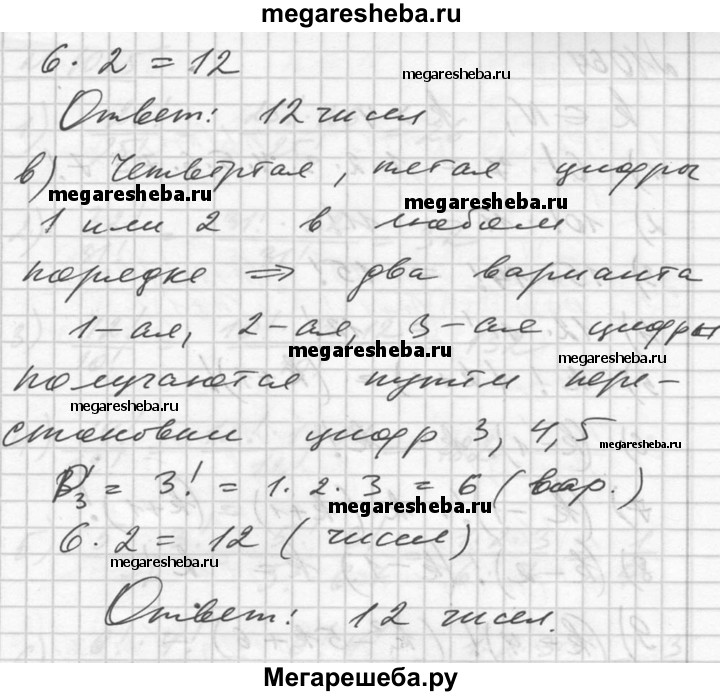 megaresheba.ru
6 · 2 = 12
megaresheba.ru
Ответ: 12 чисел
в) Четвёртая, пятая цифры
megaresheba.ru megaresheba.ru
1 или 2 в любом
порядке ⇒ два варианта
1-ая, 2-ая, 3-ая цифры
megaresheba.ru megaresheba.ru
получаются путём пере-
megaresheba.ru
становки цифр 3, 4, 5
megaresheba.ru
P₃ = 3! = 1 · 2 · 3 = 6 (вар.)
megaresheba.ru
6 · 2 = 12 (чисел)
megaresheba.ru
Ответ: 12 чисел.
Мегарешеба.ру